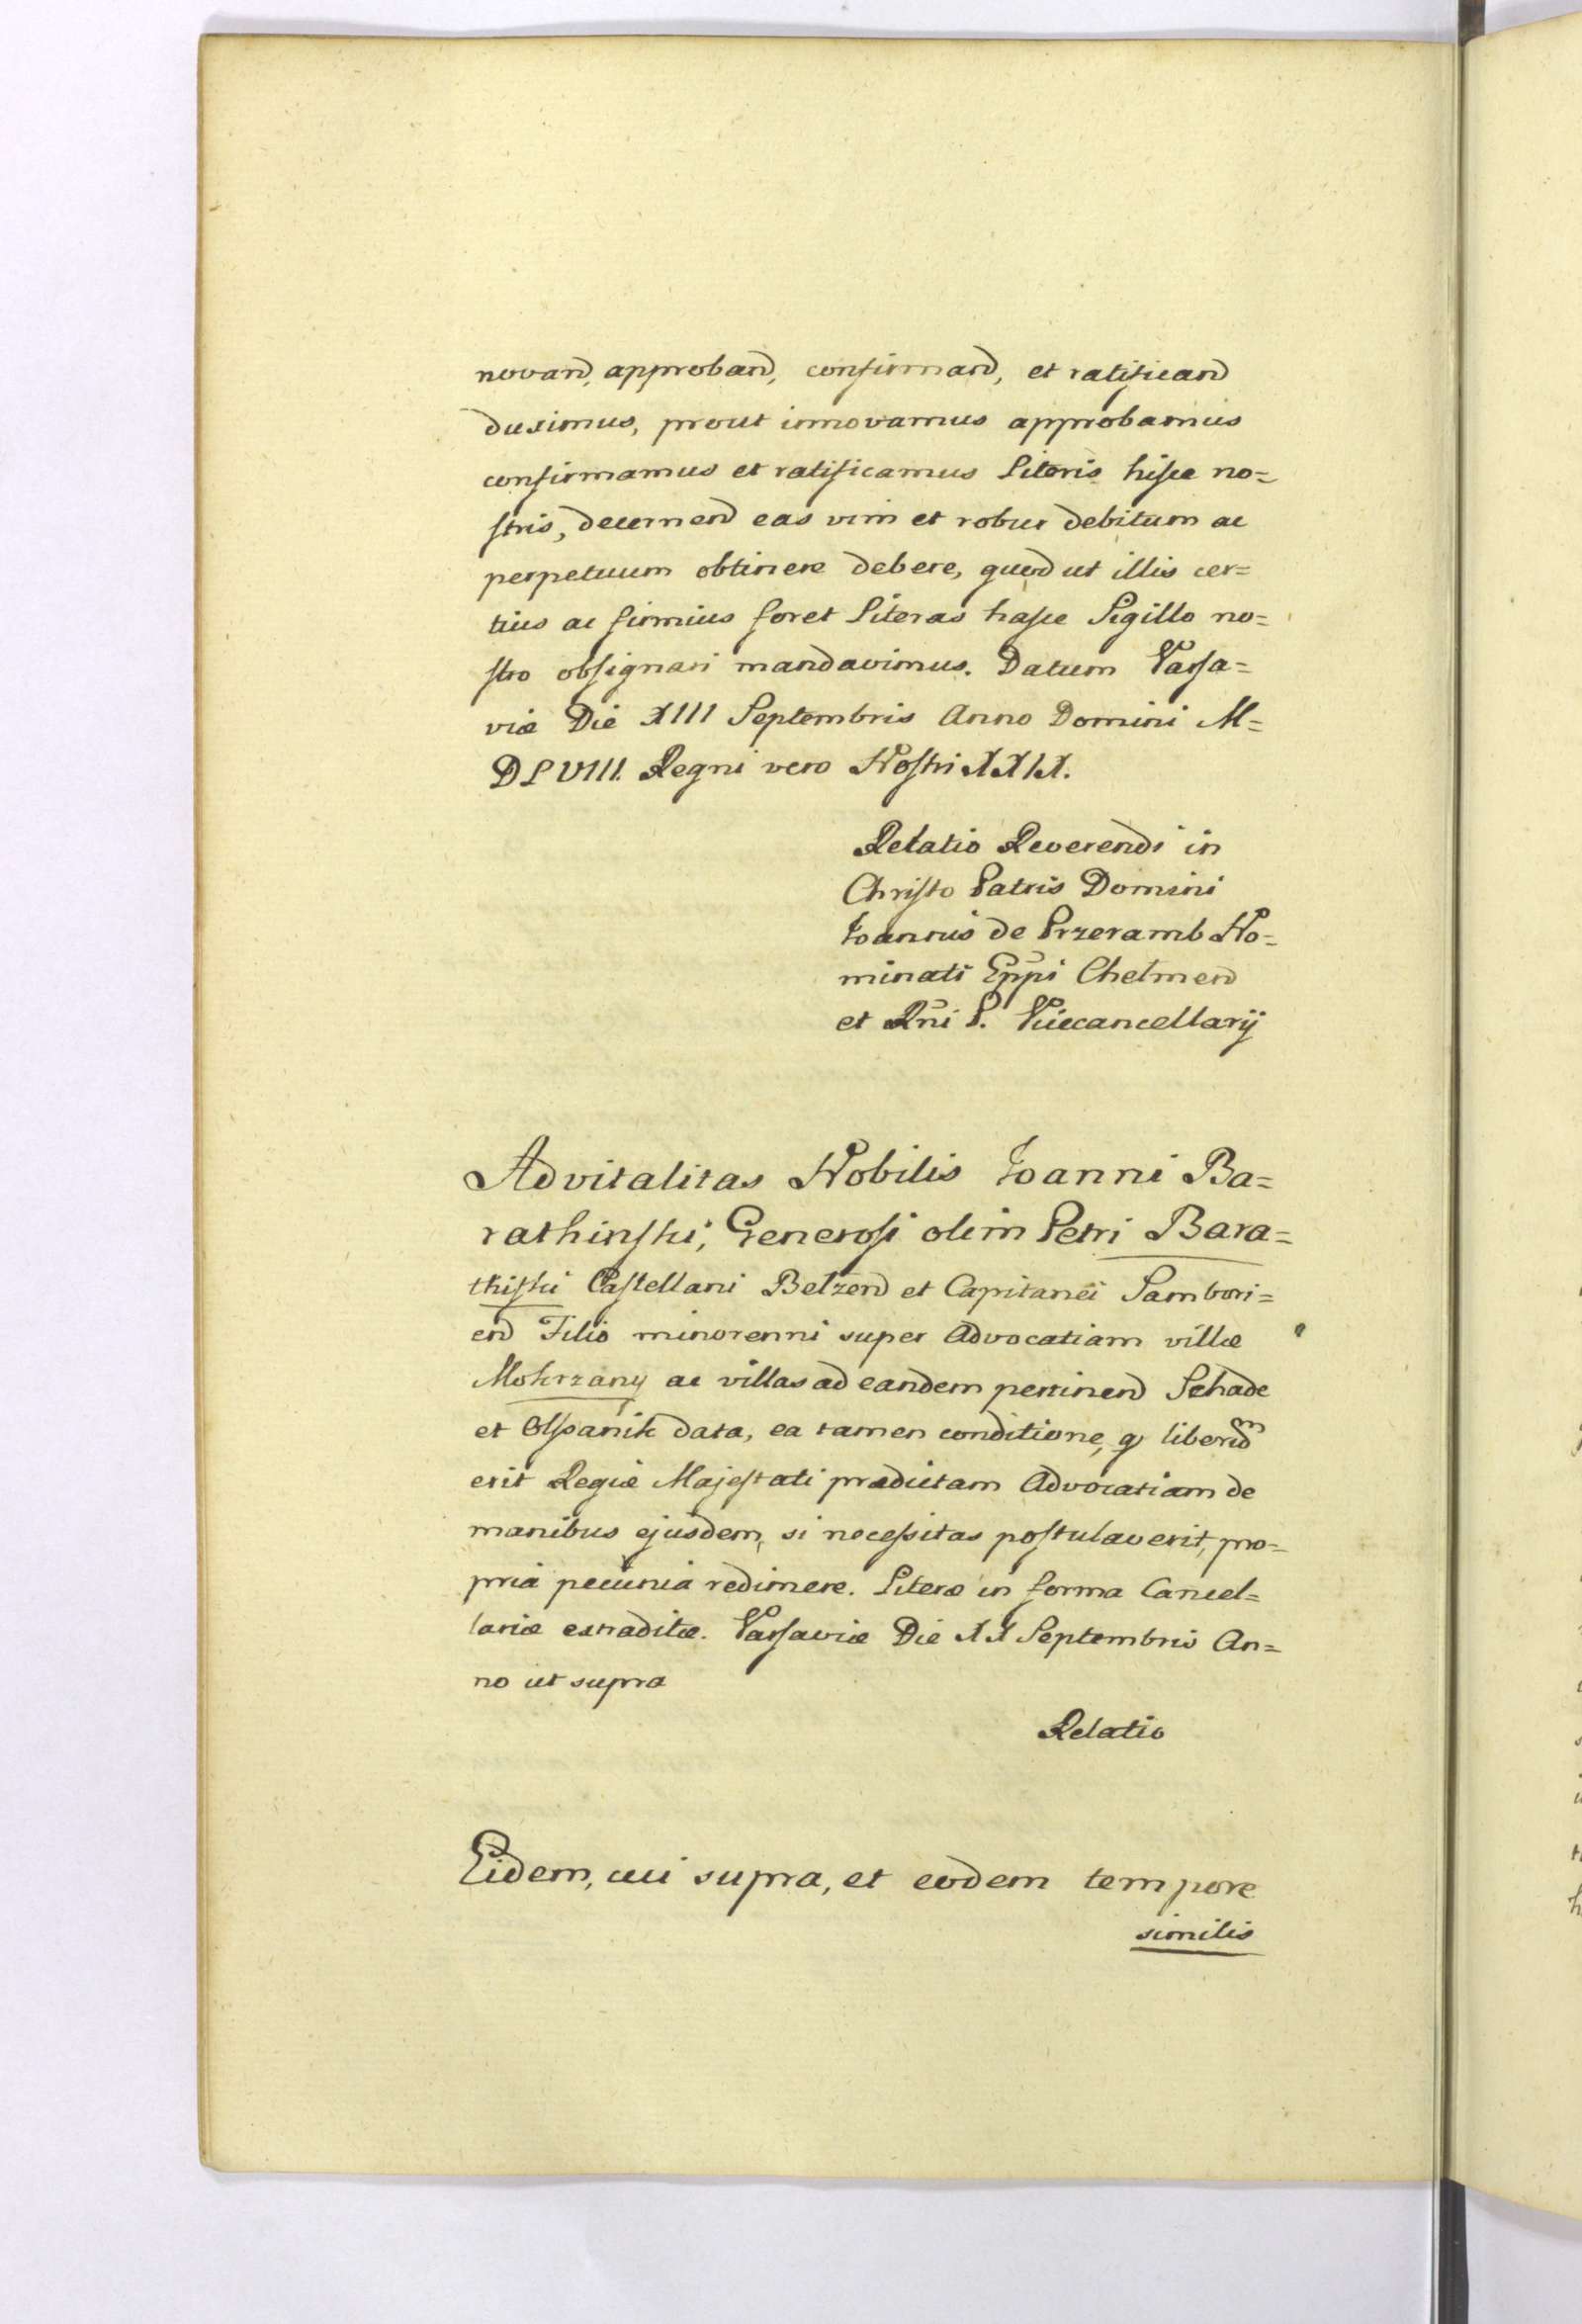 novand, approband, confirmand, et ratificand
duximus, prout innovamus approbamus
confirmamus et ratificamus Literis hisce no=
stris, decernend eas vim et robur debitum ac
perpetuum obtinere debere, quod ut illis cer=
tius ac firmius foret Literas hasce Sigillo no=
stro obsignari mandavimus. Datum Varsa=
viæ Die XIII Septembris Anno Domini M=
DLVIII. Regni vero Nostri XXIX.
Relatio Reverendi in
Christo Patris Domini
Joannis de Przeramb No=
minati Eppi Chelmen
et Rni P. Vicecancellarij
Advitalitas Nobilis Joanni Ba=
rathinski, Generosi olim Petri Bara=
thiski Castellani Belzend et Capitanei Sambori=
end Filio minorenni super Advocatiam villæ
Mokrzany ac villas ad eandem pertinend Schade
et Olspanik data, ea tamen conditione, q liberum
erit Regiæ Majestati prædictam Advocatiam de
manibus ejusdem, si necessitas postulaverit, pro=
pria pecunia redimere. Literæ in forma Cancel=
lariæ extraditæ. Varsaviæ Die XX Septembris An=
no ut supra
Relatio
Eidem, cui supra, et eodem tempore
similis